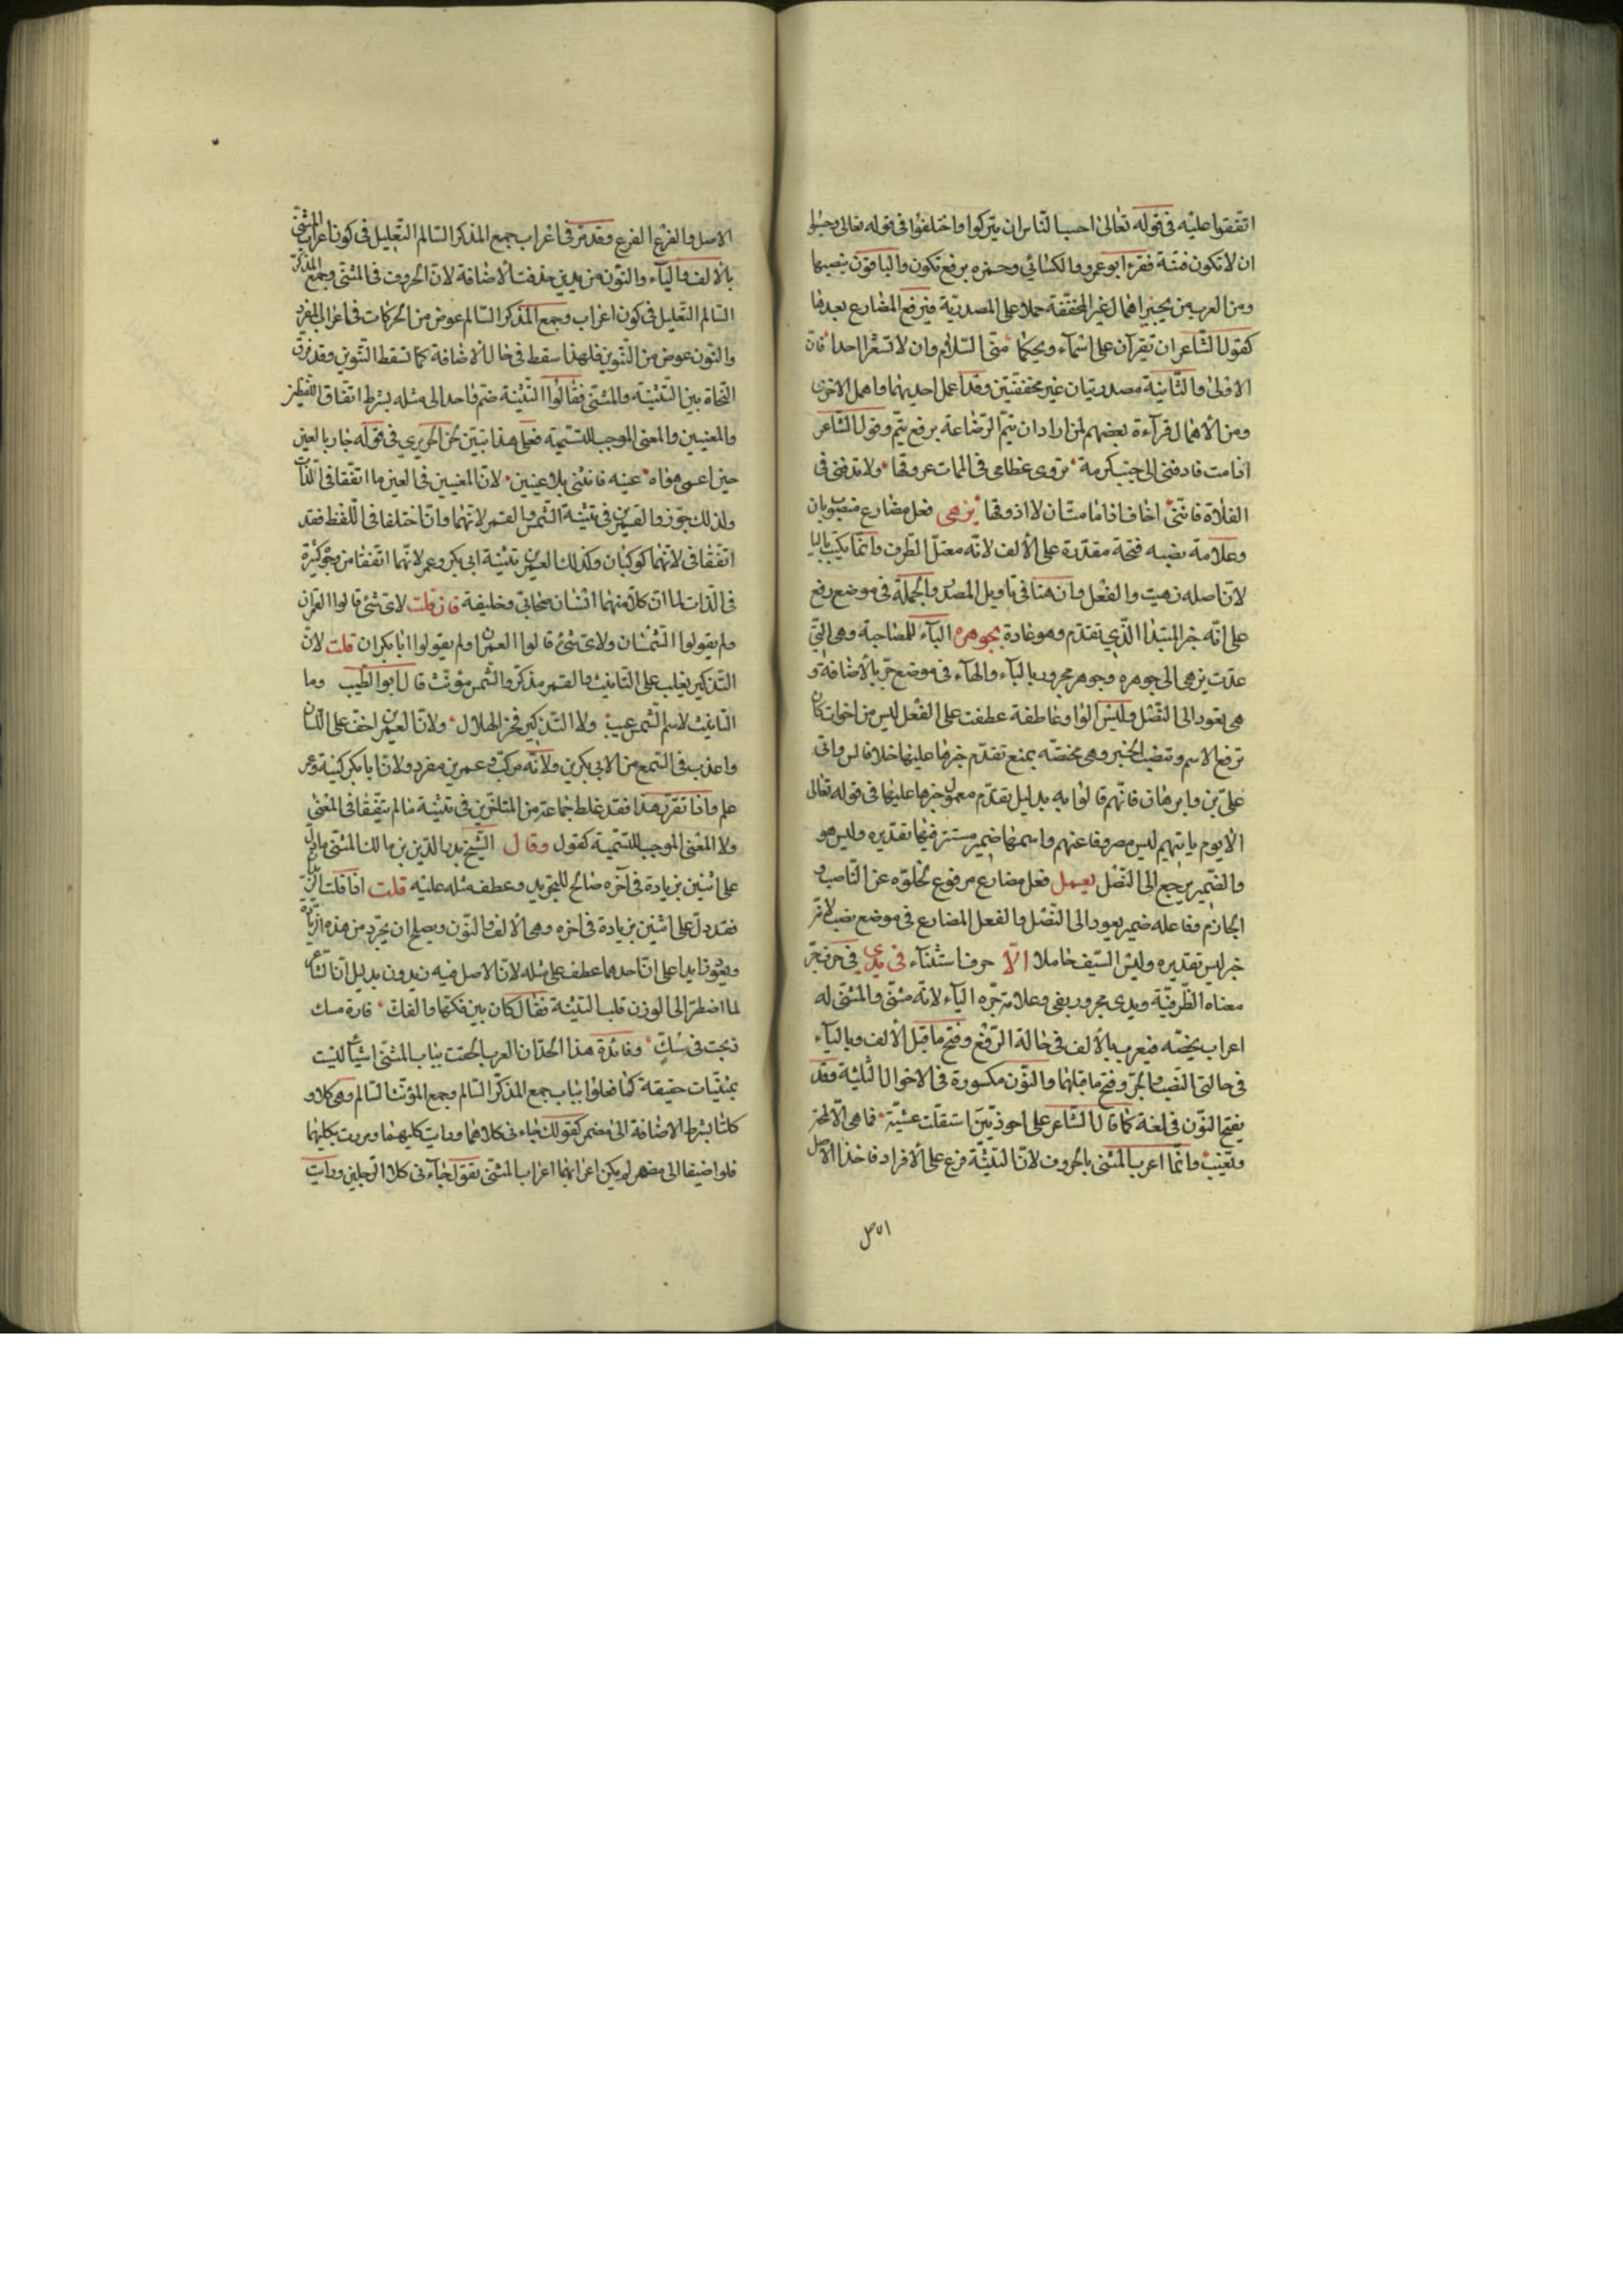 اتفقوا عليه في قوله تعالى احسب الناس ان يتركوا واختلفوا في قوله تعالى وحسبوا
ان لا تكون فتنة فقرء ابو عمرو والكسائي وحمزه برفع تكون والباقون بنصبها
ومن العرب من يجيز اهمال غير المخففة حملا على المصدرية فيرفع المضارع بعدها
كقول الشاعر ان تقرآن على اسماء ويحكما مني السلام وان لا تشعرا احدا فان
الاولى والثانية مصدريتان غير مخففتين وقد اعمل احديهما واهمل الاخرى
ومن الاهمال قرآءة بعضهم لمن اراد ان يتم الرضاعة برفع يتم وقول الشاعر
اذا مت فادفني الى جنب كرمة تروى عظامي في الممات عروقها ولا تدفني في
الفلاة فانني اخاف اذا ما مت ان لا اذوقها يزهى فعل مضارع منصوب بان
وعلامة نصبه فتحة مقدرة على الالف لانه معتل الطرف وانما يكتب بالياء
لان اصله زهيت والفعل وان هنا في تاويل المصدر والجملة في موضع رفع
على انه خبر المبتدا الذي تقدم وهو عادة بجوهره الباء للمصاحبة وهي التي
عدت يزهى الى جوهره وجوهر مجرور بالباء والهاء في موضع جر بالاضافة و
هي يعود الى النصل وليس الواو عاطفة عطفت على الفعل ليس من اخوات كان
ترفع الاسم وتنصب الخبر وهي مختصه بمنع تقدم خبرها عليها خلافا لس وابي
علي بن وابرهان فانهم قالوا به بدليل تقدم معمول خبرها عليها في قوله تعالى
الا يوم ياتيهم ليس مصروفا عنهم واسمها ضمير مستتر فيها تقديره وليس هو
والضمير يرجع الى النصل يعمل فعل مضارع مرفوع لخلوه عن الناصب و
الجازم وفاعله ضمير يعود الى النصل والفعل المضارع في موضع نصب لانه
خبر ليس تقديره وليس السيف عاملا الا حرف استثناء في يدي في حرف جر
معناه الظرفية ويدي مجرور بفي وعلامة جره الياء لانه مثنى والمثنى له
اعراب يخصه فيعرب بالالف في حالة الرفع وفتح ما قبل الالف وبالياء
في حالتي النصب والجر وفتح ما قبلها والنون مكسورة في الاحوال الثلثة وقد
يفتح النون في لغة كما قال الشاعر على احوذيين استقلت عشية فما هي الا لمحة
وتغيب وانما اعرب المثنى بالحروف لان التثنية فرع على الافراد فاخذ الاصل
الاصل والفرع الفرع وقد مر في اعراب جمع المذكر السالم التعليل في كون اعراب المثنى
بالالف والياء والنون مزيدين حذفت الاضافة لان الحروف في المثنى وجمع المذكر
السالم التعليل في كون اعراب وجمع المذكر السالم عوض من الحركات في اعراب المفرد
والنون عوض من التنوين فلهذا سقط في حال الاضافة كما تسقط التنوين وقد فرق
النحاة بين التثنية والمثنى فقالوا التثنية ضم واحد الى مثله بشرط اتفاق اللفظين
والمعنيين والمعنى الموجب للتسمية فعلى هذا تبين لحن الحريري في قوله جاد بالعين
حين اعمى هواه عينه فانثنى بلا عينين لان المعنيين في العين ما اتفقا في الذات
ولذلك جوز والقمرين في تثنية الشمس والقمر لانهما وان اختلفا في اللفظ فقد
اتفقا في لانهما كوكبان وكذلك العمرين تثنية ابي بكر وعمر لانهما اتفقا من وجوه كثيرة
في الذات لما ان كلا منهما انسان صحابي وخليفة فان قلت لاي شئ قالوا القمران
ولم يقولوا الشمسان ولاي شئ قالوا العمران ولم يقولوا ابا بكران قلت لان
التذكير يغلب على التانيث والقمر مذكر والشمس مؤنث قال ابو الطيب وما
التانيث لاسم الشمس عيب ولا التذكير فخر للهلال ولان العمرين اخف على اللسان
واعذب في السمع من الابي بكرين ولانه مركب وعمرين مفرد ولان ابا بكر كنية وعمر
علم واذا تقرر هذا فقد غلط جماعة من المتاخرين في تثنية ما لم يتفقا في المعنى
ولا المعنى الموجب للتسمية كقول وقال الشيخ بدر الدين بن مالك المثنى ما دل
على اثنين بزيادة في آخره صالح للتجريد وعطف مثله عليه قلت اذا قلت الزيدان
فقد دل على اثنين بزيادة في اخره وهي الالف والنون ويصلح ان يجرد من هذه الزيادة
على ان احدهما عطف على مثله لان الاصل فيه زيد وزيد بدليل ان الشاعر
لما اضطر الى الوزن قلب التثنية فقال كان بين فكها والفك فارة مسك
ذبحت في سك وفائدة هذا الحد ان العرب الحقت بباب المثنى اشياء ليست
بمثنيات حقيقة كما فعلوا بباب جمع المذكر السالم وجمع المؤنث السالم وهي كلا و
كلتا بشرط الاضافة الى مضمر كقولك جاءني كلاهما ورايت كليهما ومررت بكليهما
فلو اضيفا الى مضمر لم يكن اعرابهما اعراب المثنى تقول جاءني كلا الرجلين ورايت
الاصل